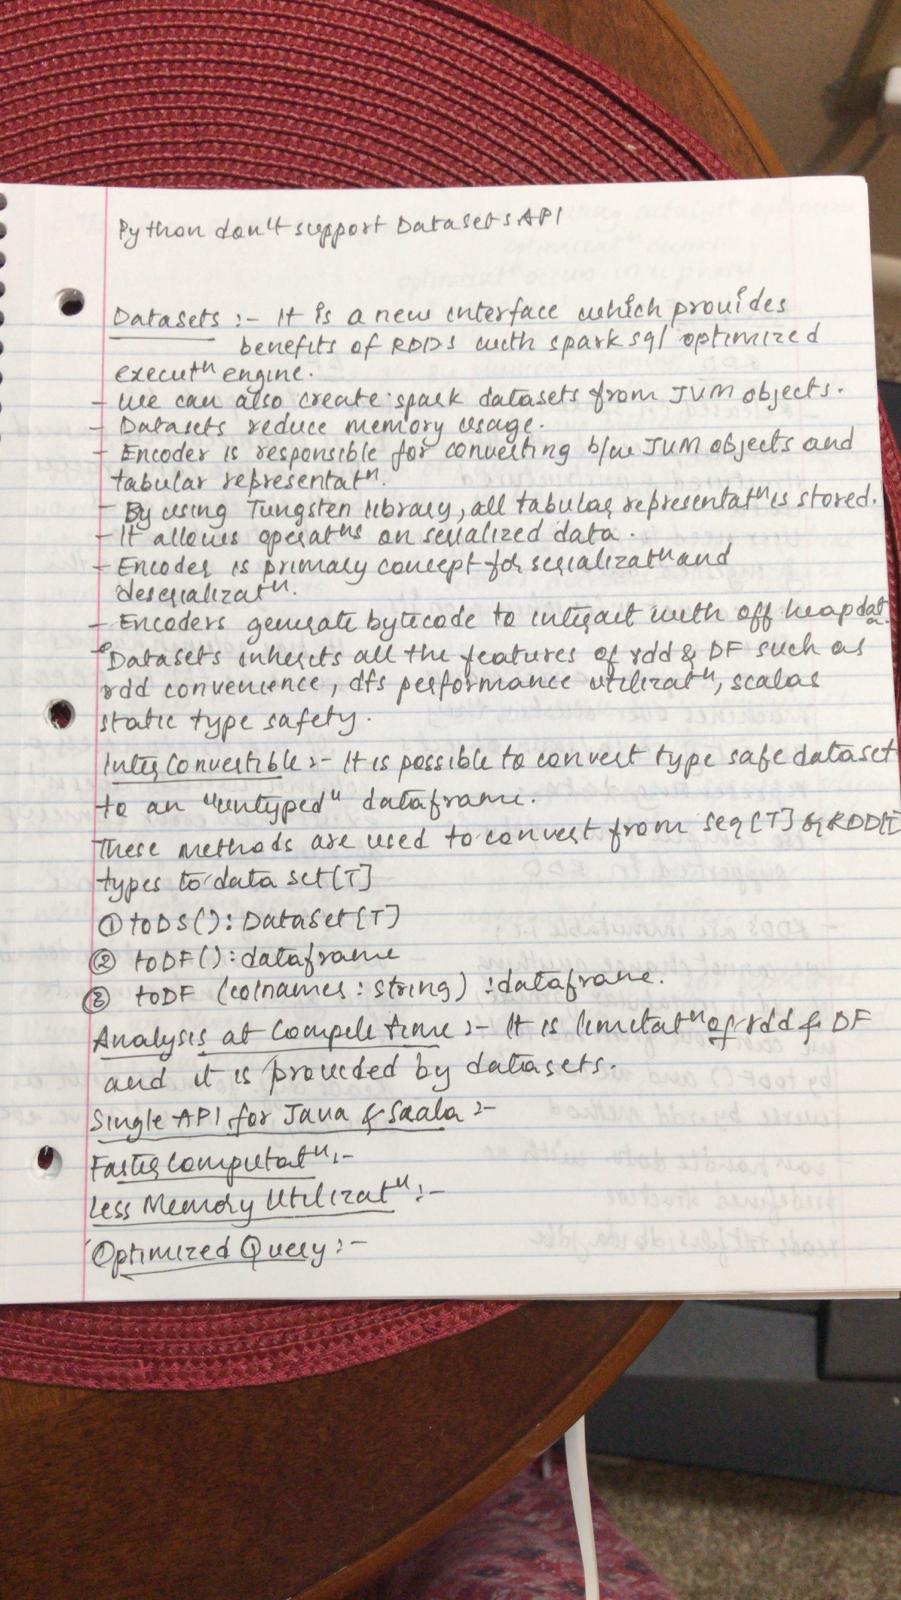 Python don't support Datasets API
Datasets :- It is a new interface which provides
benefits of RDDS with spark sql optimized
executⁿ engine.
- we can also create spark datasets from JVM objects.
- Datasets reduce memory usage.
- Encoder is responsible for converting b/w JVM objects and
tabular representatⁿ.
- By using Tungsten library, all tabular representatⁿ is stored.
- It allows operatⁿs on serialized data.
- Encoder is primary concept for serializatⁿ and
deserializatⁿ.
- Encoders generate bytecode to interact with off heap data.
Datasets inherits all the features of rdd & DF such as
rdd convenience, dfs performance utilizatⁿ, scalas
static type safety.
Inter Convertible :- It is possible to convert type safe dataset
to an "untyped" dataframe.
These methods are used to convert from seq[T] or RDD[T
types to data set[T]
① toDS(): Dataset[T]
② toDF(): dataframe
③ toDF (colnames: string) : dataframe.
Analysis at Compile time :- It is limitatⁿ of rdd & DF
and it is provided by datasets.
Single API for Java & Scala :-
Faster Computatⁿ :-
Less Memory Utilizatⁿ :-
Optimized Query :-